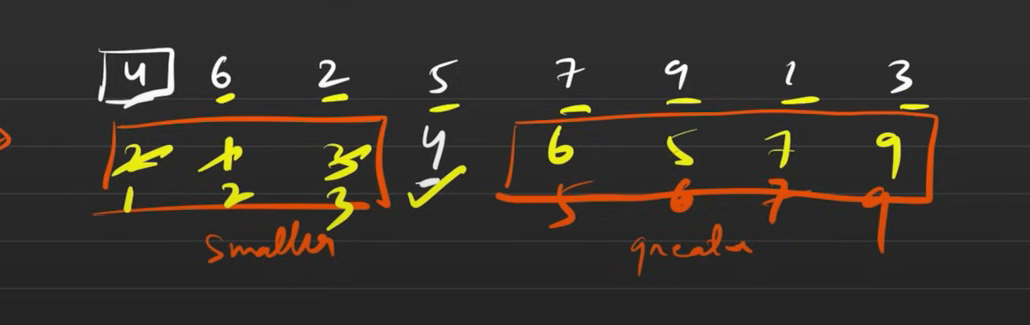 4 6 2 5 7 9 1 3
2 1 3 4 6 5 7 9
1 2 3 5 6 7 9
smaller greater